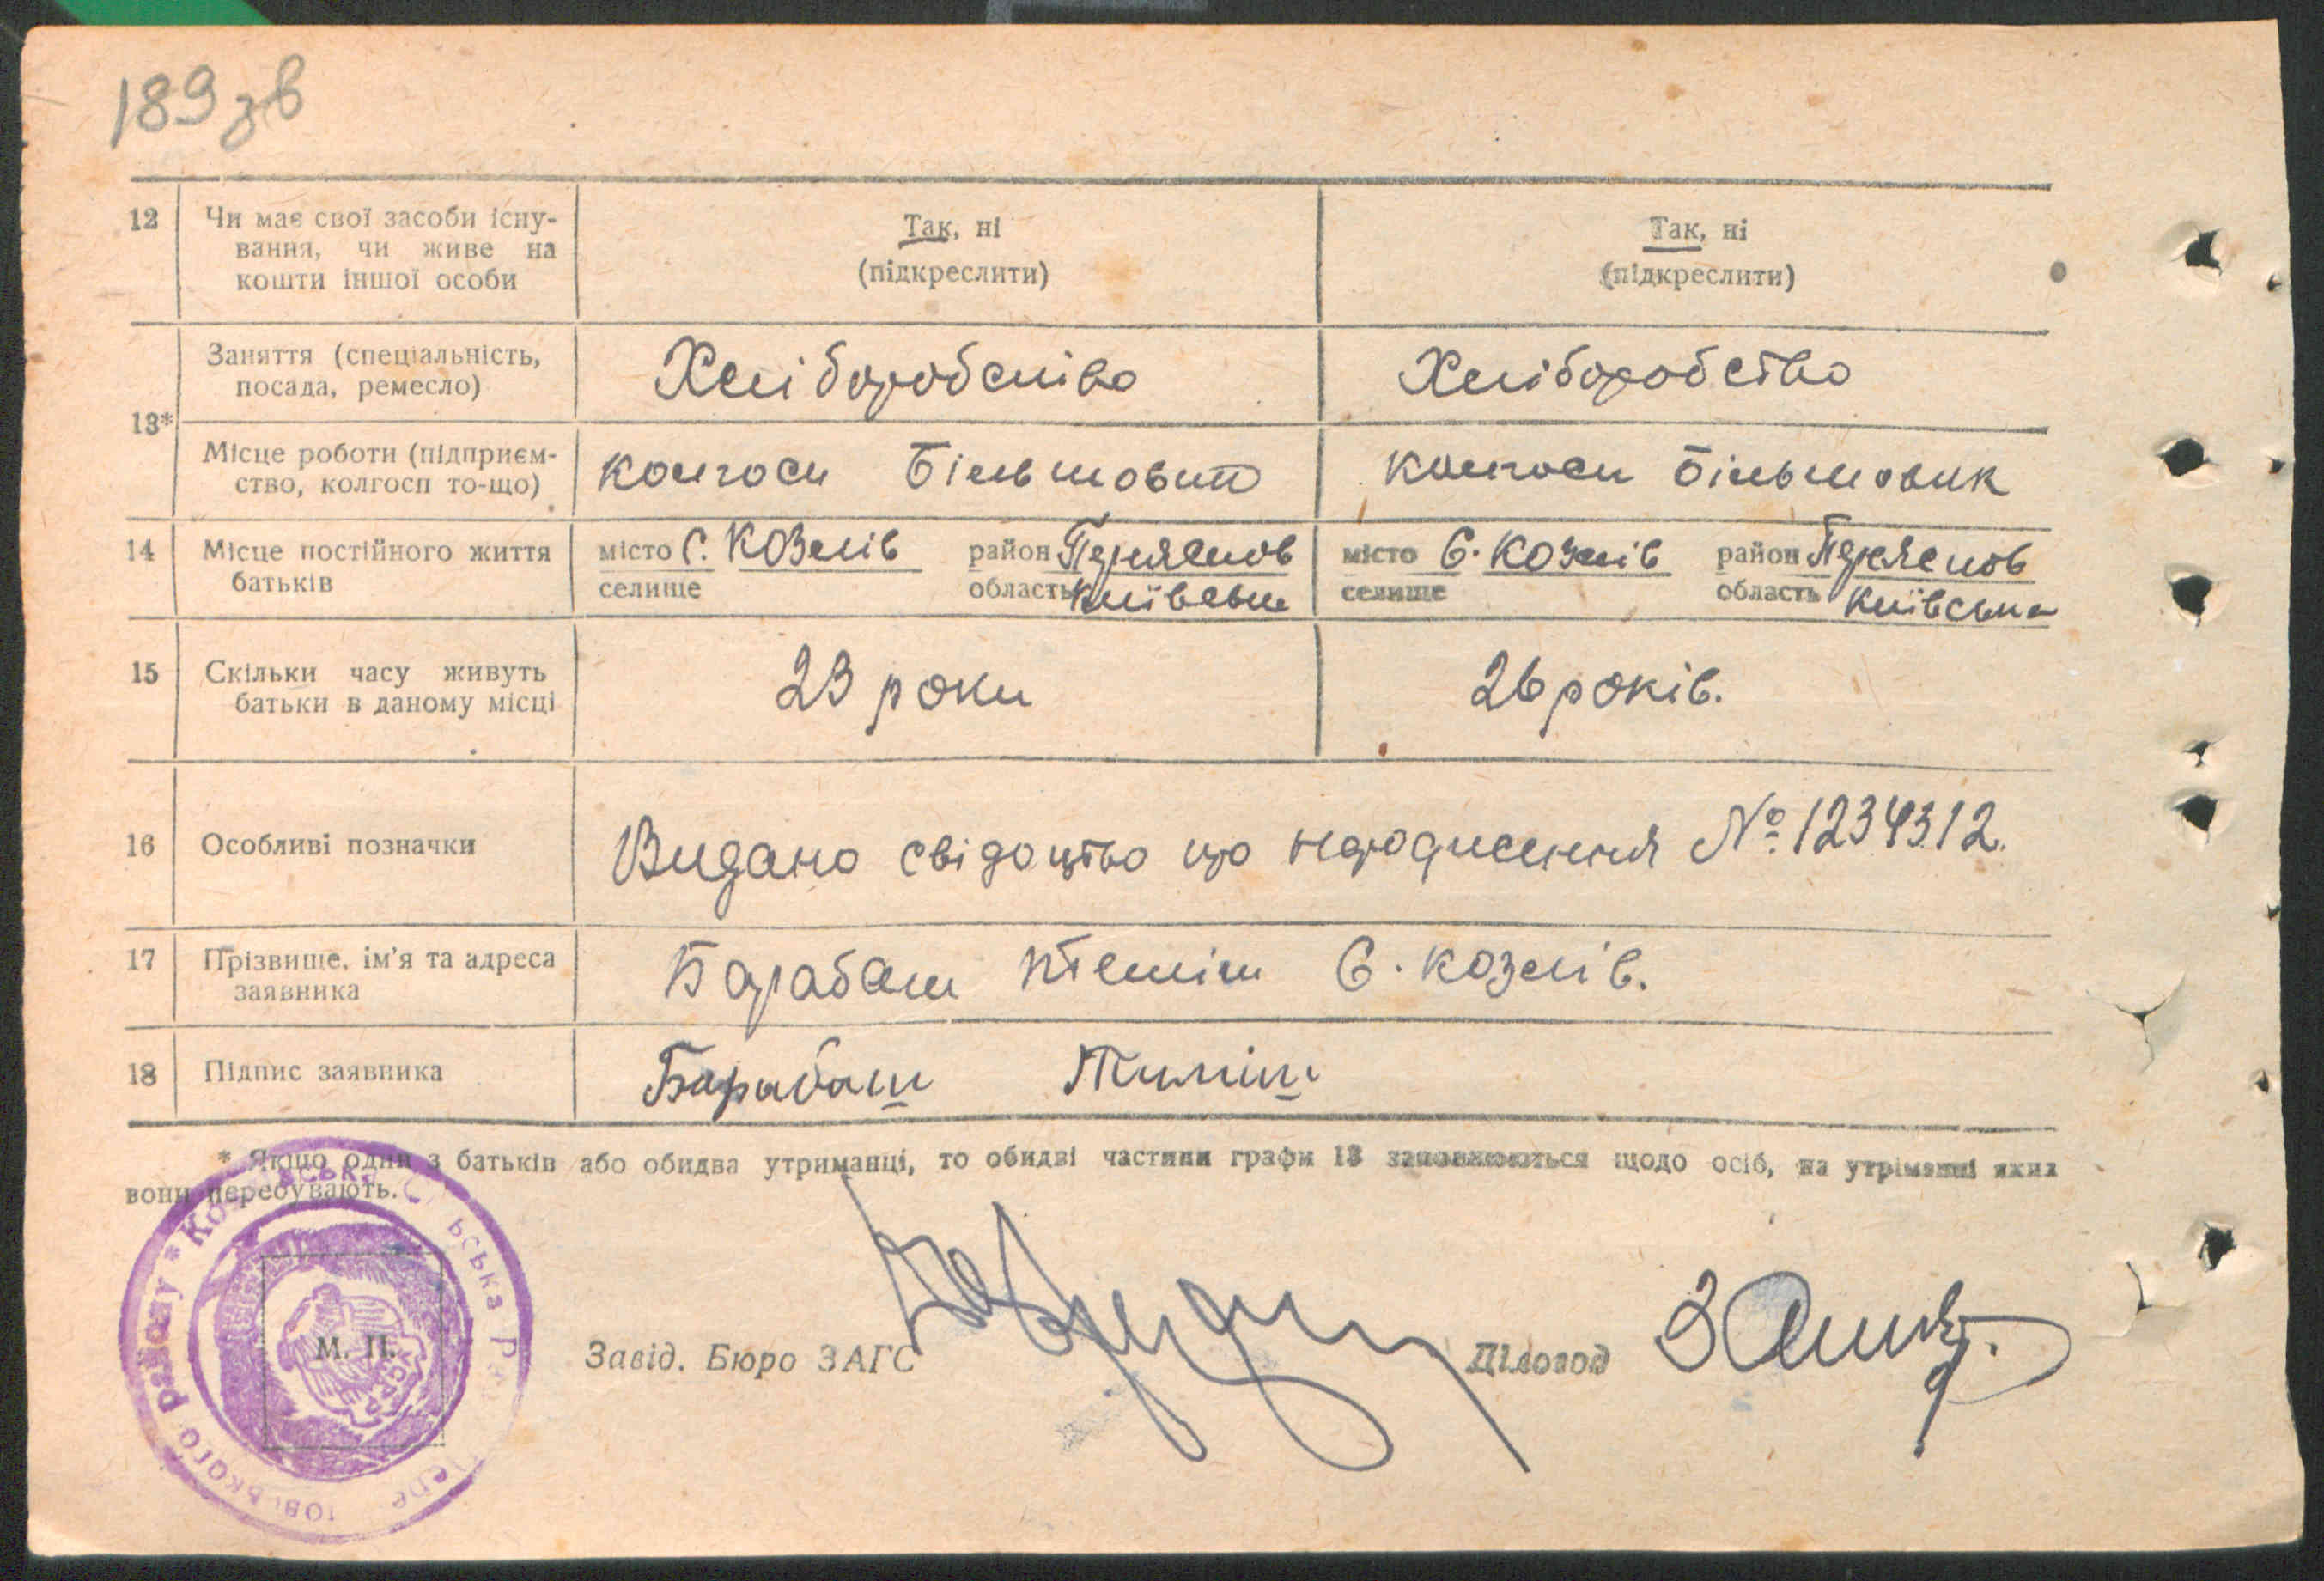 189 зв
12 Чи має свої засоби існу-
вання, чи живе на
кошти іншої особи
Так, ні
(підкреслити)
Так, ні
(підкреслити)
13*
Заняття (спеціальність,
посада, ремесло)
Хліборобство
Хліборобство
Місце роботи (підприєм-
ство, колгосп то-що)
колгосп Більшовик
колгосп Більшовик
14 Місце постійного життя
батьків
місто С. Козлів район
селище область Київська
місто С. Козлів район
селище область Київська
15 Скільки часу живуть
батьки в даному місці
23 роки
26 років.
16 Особливі позначки
Видано свідоцтво про народження № 1234312.
17 Прізвище, ім'я та адреса
заявника
Барабаш Теміш С. Козлів.
18 Підпис заявника
Барабаш Тиміш
* Якщо один з батьків або обидва утриманці, то обидві частини графи 13 заповнюються щодо осіб, на утріманні яких
вони перебувають.
М. П.
Завід. Бюро ЗАГС
Діловод
району * УСРР